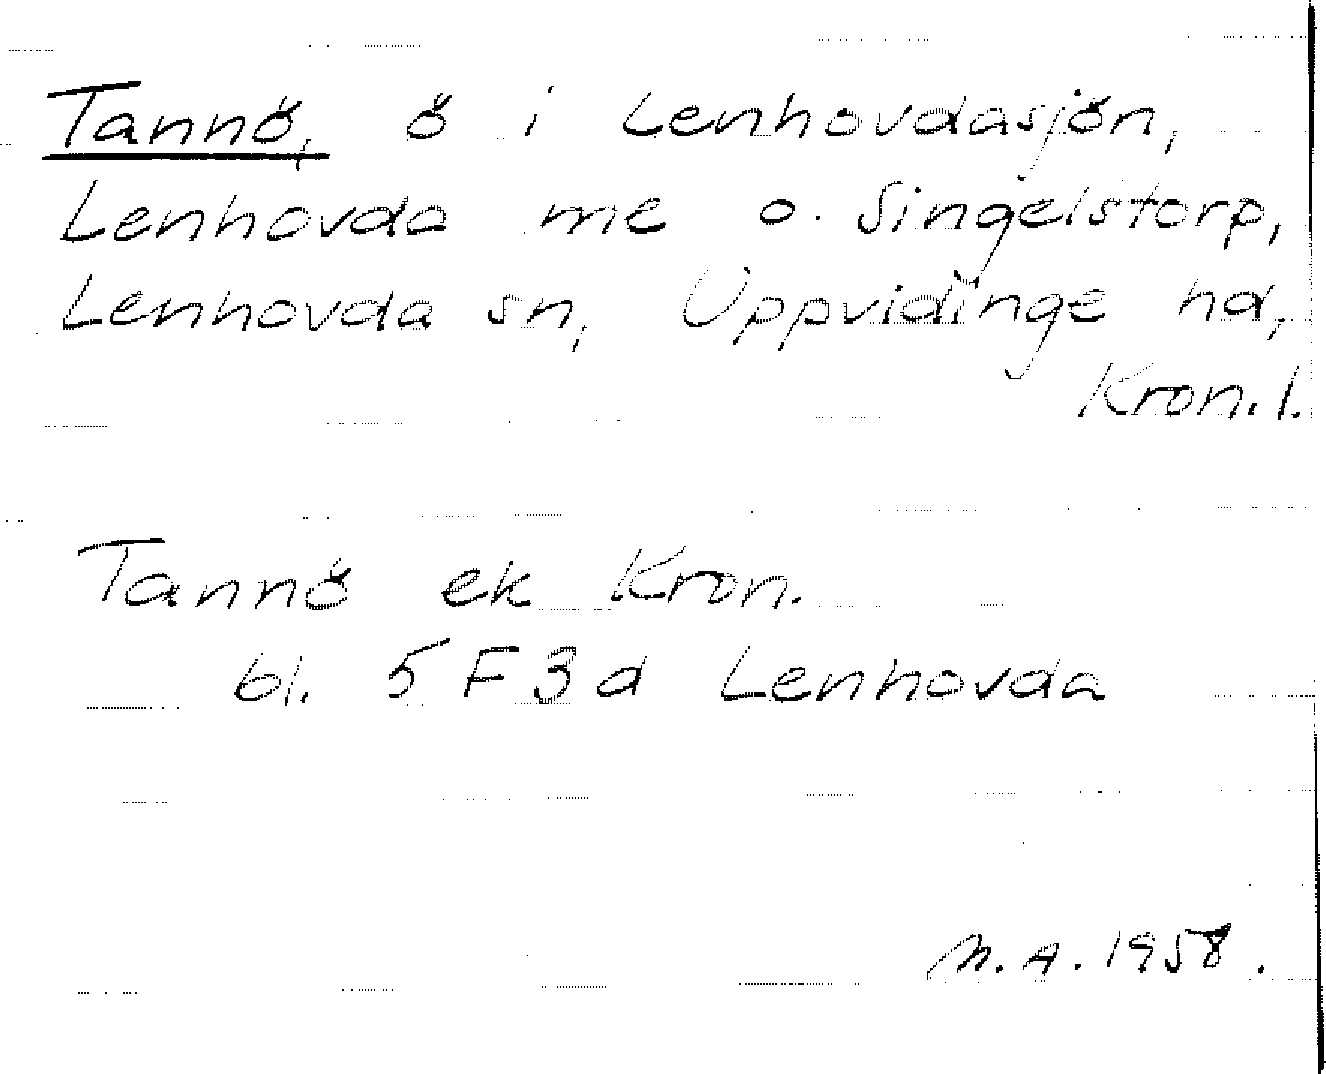 Tannö, ö i Lenhovdasjön,
Lenhovda me o. Singelstorp,
Lenhovda sn, Uppvidinge hd,
Kron. l.
Tannö ek Kron.
bl. 5 F 3 d Lenhovda
M. A. 1958.